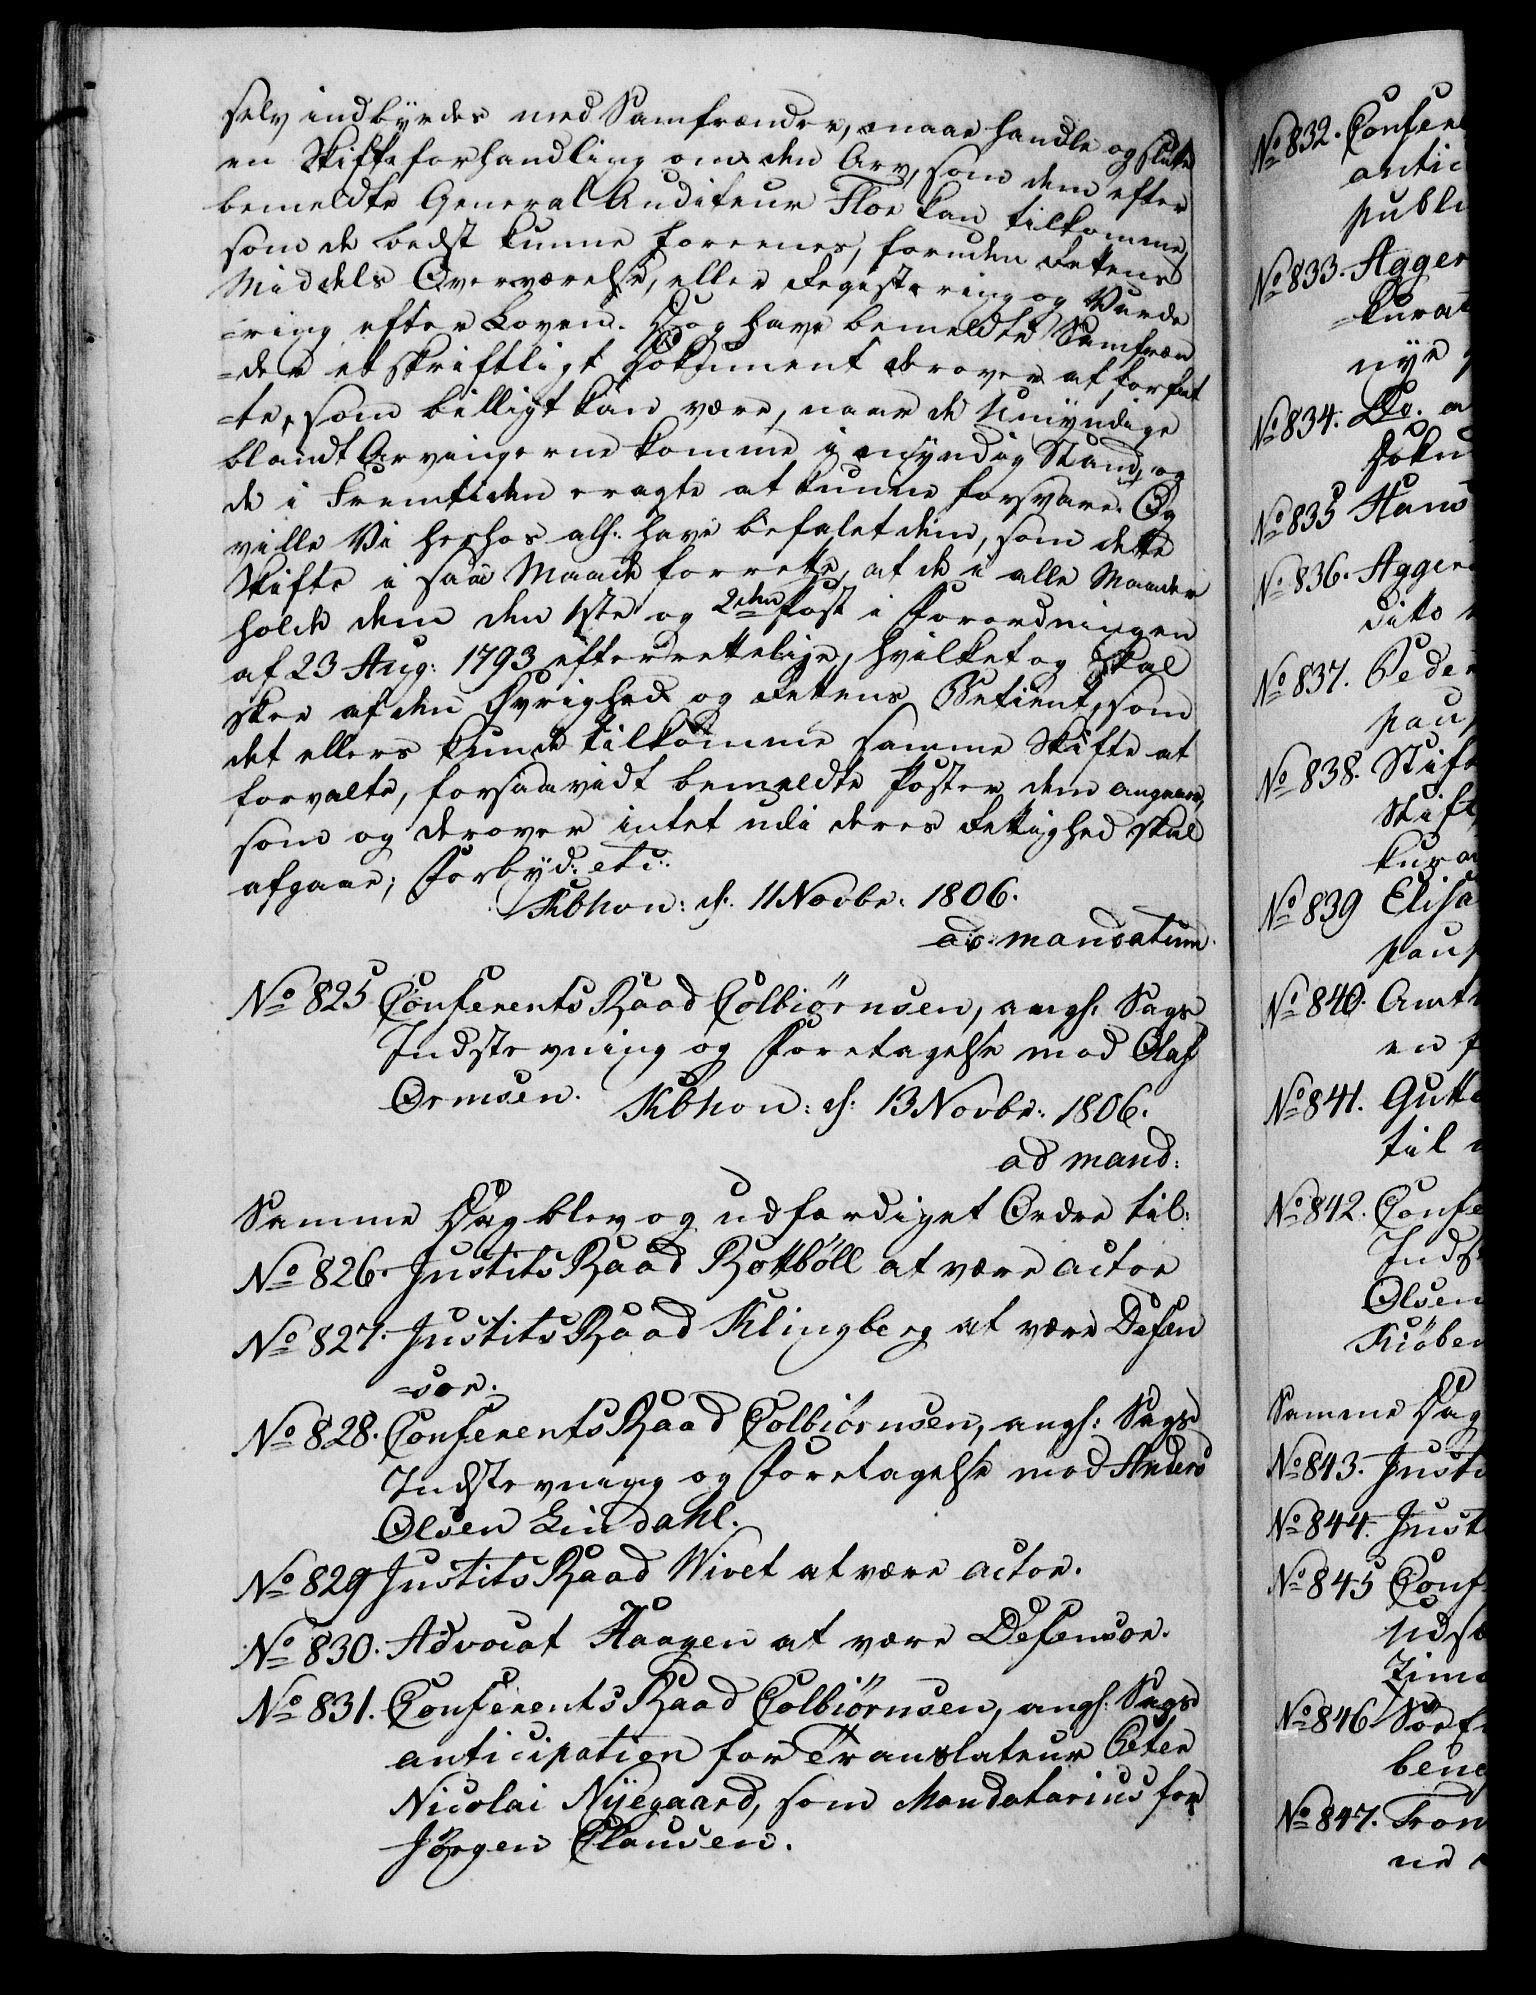 selv indbÿrdes med Samfrænder, maae handle og slutte
en Skifteforhandling om den Arv, som dem efter
bemeldte General Auditeur Floe kan tilkomme,
som de bedst kunne foreenes, foruden Rettens
Middels Overværelse, eller Registering og Vurde
=ring efter Loven. Dog have bemeldte Samfræn
=der et skriftligt Dokument derover at forfat
=te, som billigt kan være, naar de Umÿndige
blandt Arvingerne komme i mÿndig Stand, og
de i Fremtiden eragte at kunne forsvare. Og
ville Vi herhos alf: have befalet dem, som dette
Skifte i saa Maade forrette, at de i alle Maader
holde dem den 1ste og 2den Post i Forordningen
af 23 Aug: 1793 efterrettelige, hvilket og skal
skee af den Øvrighed og Rettens Betient, som
det ellers kunde tilkomme samme Skifte at
forvalte, forsaavidt bemeldte Poster dem angaaer,
som og derover intet udi deres Rettighed skal
afgaae; Forbÿd: etc:
Kbhvn: d: 11 Novbr: 1806.
ad mandatum.
No 825 Conferents Raad Colbiørnsen, angl: Sags
Indstevning og Foretagelse mod Olaf
Ormsen. Kbhvn: d: 13 Novbr: 1806.
ad mand:
Samme Dag blev og udfærdiget Ordre til:
No 826. Justits Raad Rottbøll at være actor
No 827. Justits Raad Klingberg at være Defen
=sor.
No 828. Conferents Raad Colbiørnsen, angl: Sags
Indstevning og Foretagelse mod Anders
Olsen Lindahl.
No 829 Justits Raad Wivet at være actor.
No 830. Advocat Haagen at være Defensor.
No 831. Conferents Raad Colbiørnsen, angl: Sags
anticipation for Translateur Peter
Nicolai Nÿegaard, som Mandatarius for
Jörgen Clausen.
No 832. Confere
antic
publi
No 833. Agger
=kurat
nÿe
No 834. Do. a
Doku
No 835 Hans
No 836. Agger
dito
No 837. Peder
paup
No 838. Stift
Stift
kura
No 839 Elisa
paup
No 840. Amt
en f
No 841. Gutt
til
No 842. Confe
Indst
Olsen
Kiöben
Samme Dag
No 843. Justi
No 844. Just
No 845 Conf
Udst
Tim
No 846 Sör
bene
No 847. Tron
ne